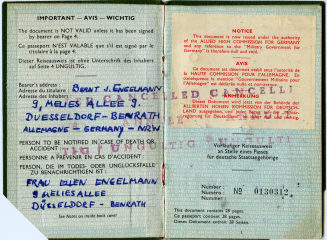 IMPORTANT — AVIS — WICHTIG
The document is NOT VALID unless it is signed
by bearer on Page 4.
Ce passeport N'EST VALABLE que s'il est signé par
le titulaire à la page 4.
Dieser Reiseausweis ist ohne Unterschrift des Inhabers
auf Seite 4 UNGÜLTIG.
Bearer's address
Adresse du titulaire
BERNT J. ENGELMANN
9, MELIES ALLEE 9.
DUESSELDORF - BENRATH
ALLEMAGNE - GERMANY - NRW
PERSON TO BE NOTIFIED IN CASE OF DEATH OR
ACCIDENT
PERSONNE A PREVENIR EN CAS D'ACCIDENT.
PERSON, DIE IM TODES- ODER UNGLÜCKSFALLE
ZU BENACHRICHTIGEN IST:
FRAU ELLEN ENGELMANN
9 MELIESALLEE
DÜSSELDORF - BENRATH
See Notes on inside back cover
NOTICE
This document is now issued under the authority
of the ALLIED HIGH COMMISSION FOR GERMANY
and any reference to the "Military Government for
Germany" is therefore null and void.
AVIS
Ce document est désormais établi sous l'autorité de
la HAUTE COMMISSION ALLIEE POUR L'ALLEMAGNE. En
conséquence la mention "Gouvernement Militaire pour
l'Allemagne" est déclarée nulle et non avenue.
ANMERKUNG
CANCELLED CANCELLED
UNGÜLTIG
Vorläufiger Reiseausweis
an Stelle eines Passes
für deutsche Staatsangehörige
Number
Numéro
Nummer
Nº 0130312
This document contains 28 pages.
Ce passeport contient 28 pages.
Dieser Reiseausweis enthält 28 Seiten.